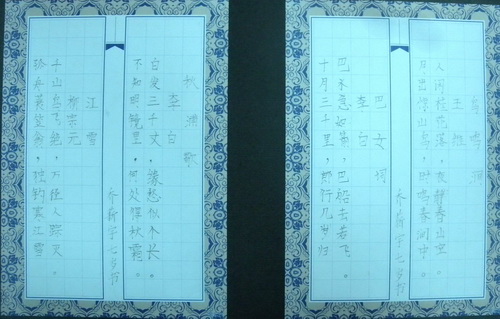 鸟鸣涧
王维
人闲桂花落，夜静春山空。
月出惊山鸟，时鸣春涧中。
宇七岁书
巴女词
李白
巴水急如箭，巴船去若飞。
十月三千里，郎行几岁归
秋浦歌
李白
白发三千丈，缘愁似个长。
不知明镜里，何处得秋霜。
宇七岁书
江雪
柳宗元
千山鸟飞绝，万径人踪灭。
孤舟蓑笠翁，独钓寒江雪